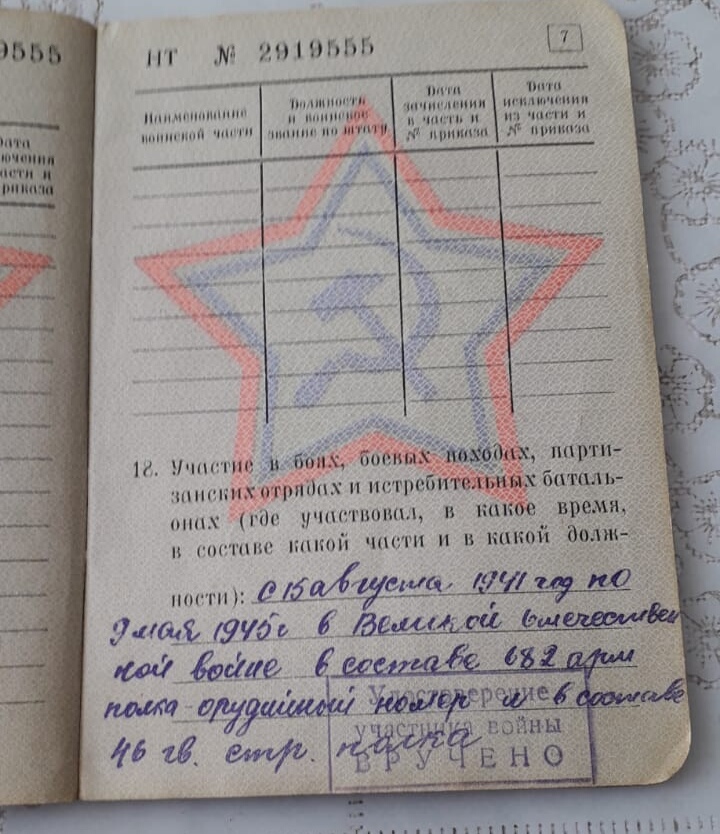 9555
НТ № 2919555
7
Дата
ючения
асти и
риказа
Наименование
воинской части
Должность
и воинское
звание по штату
Дата
зачисления
в часть и
№ приказа
Дата
исключения
из части и
№ приказа
18. Участие в боях, боевых походах, парти-
занских отрядах и истребительных баталь-
онах (где участвовал, в какое время,
в составе какой части и в какой долж-
ности): с 15 августа 1941 год по
9 мая 1945г в Великой Отечествен
ной войне в составе 682 арт
полка орудийный номер и в составе
46 гв. стр. полка
Удостоверение
участника войны
ВРУЧЕНО